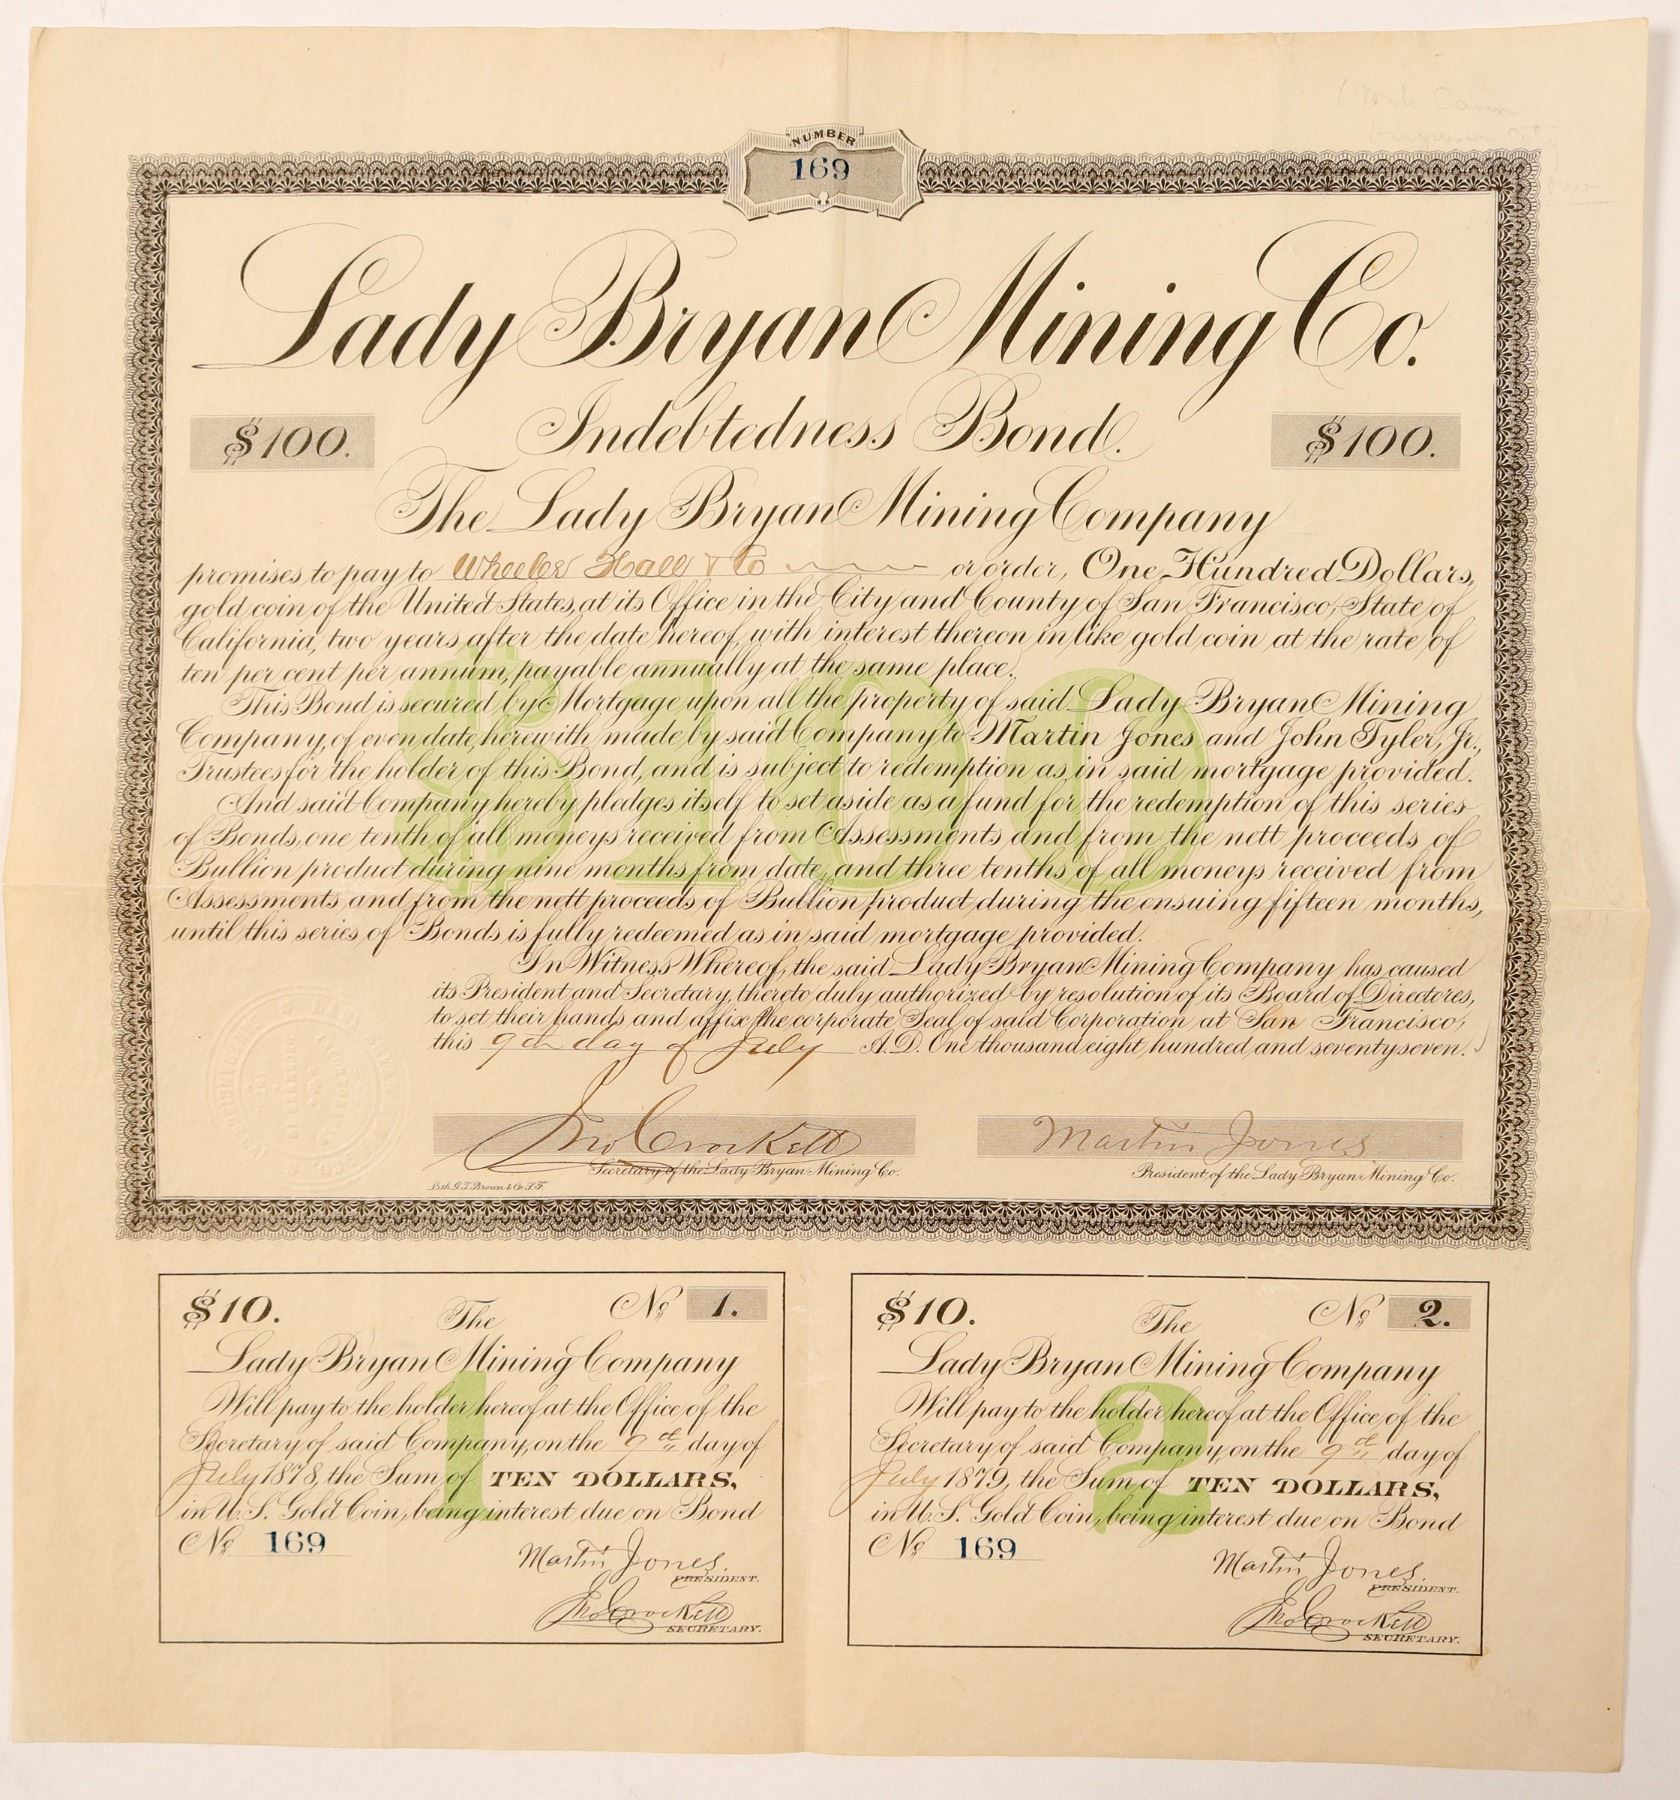 NUMBER
169
Lady Bryan Mining Co.
$100. Indebtedness Bond. $100.
The Lady Bryan Mining Company
promises to pay to Wheeler Hall & Co or order, One Hundred Dollars,
gold coin of the United States, at its Office in the City and County of San Francisco, State of
California, two years after the date hereof, with interest thereon in like gold coin at the rate of
ten per cent per annum, payable annually at the same place.
$100
This Bond is secured by Mortgage upon all the property of said Lady Bryan Mining
Company, of even date, herewith made by said Company to Martin Jones and John Tyler, Jr.,
Trustees for the holder of this Bond, and is subject to redemption as in said mortgage provided.
And said Company hereby pledges itself to set aside as a fund for the redemption of this series
of Bonds, one tenth of all moneys received from Assessments and from the nett proceeds of
Bullion product during nine months from date, and three tenths of all moneys received from
Assessments and from the nett proceeds of Bullion product during the ensuing fifteen months,
until this series of Bonds is fully redeemed as in said mortgage provided.
In Witness Whereof, the said Lady Bryan Mining Company has caused
its President and Secretary, thereto duly authorized by resolution of its Board of Directores,
to set their hands and affix the corporate Seal of said Corporation at San Francisco,
this 9th day of July A.D. One thousand eight hundred and seventy seven.
Jno Crockett Martin Jones
Secretary of the Lady Bryan Mining Co. President of the Lady Bryan Mining Co.
Lith. G.T. Brown & Co. S.F.
$10. The No 1.
Lady Bryan Mining Company
Will pay to the holder hereof at the Office of the
Secretary of said Company, on the 9th day of
July 1878, the Sum of TEN DOLLARS,
in U.S. Gold Coin, being interest due on Bond
No 169
1
Martin Jones
PRESIDENT.
Jno Crockett
SECRETARY.
$10. The No 2.
Lady Bryan Mining Company
Will pay to the holder hereof at the Office of the
Secretary of said Company, on the 9th day of
July 1879, the Sum of TEN DOLLARS,
in U.S. Gold Coin, being interest due on Bond
No 169
2
Martin Jones
PRESIDENT.
Jno Crockett
SECRETARY.